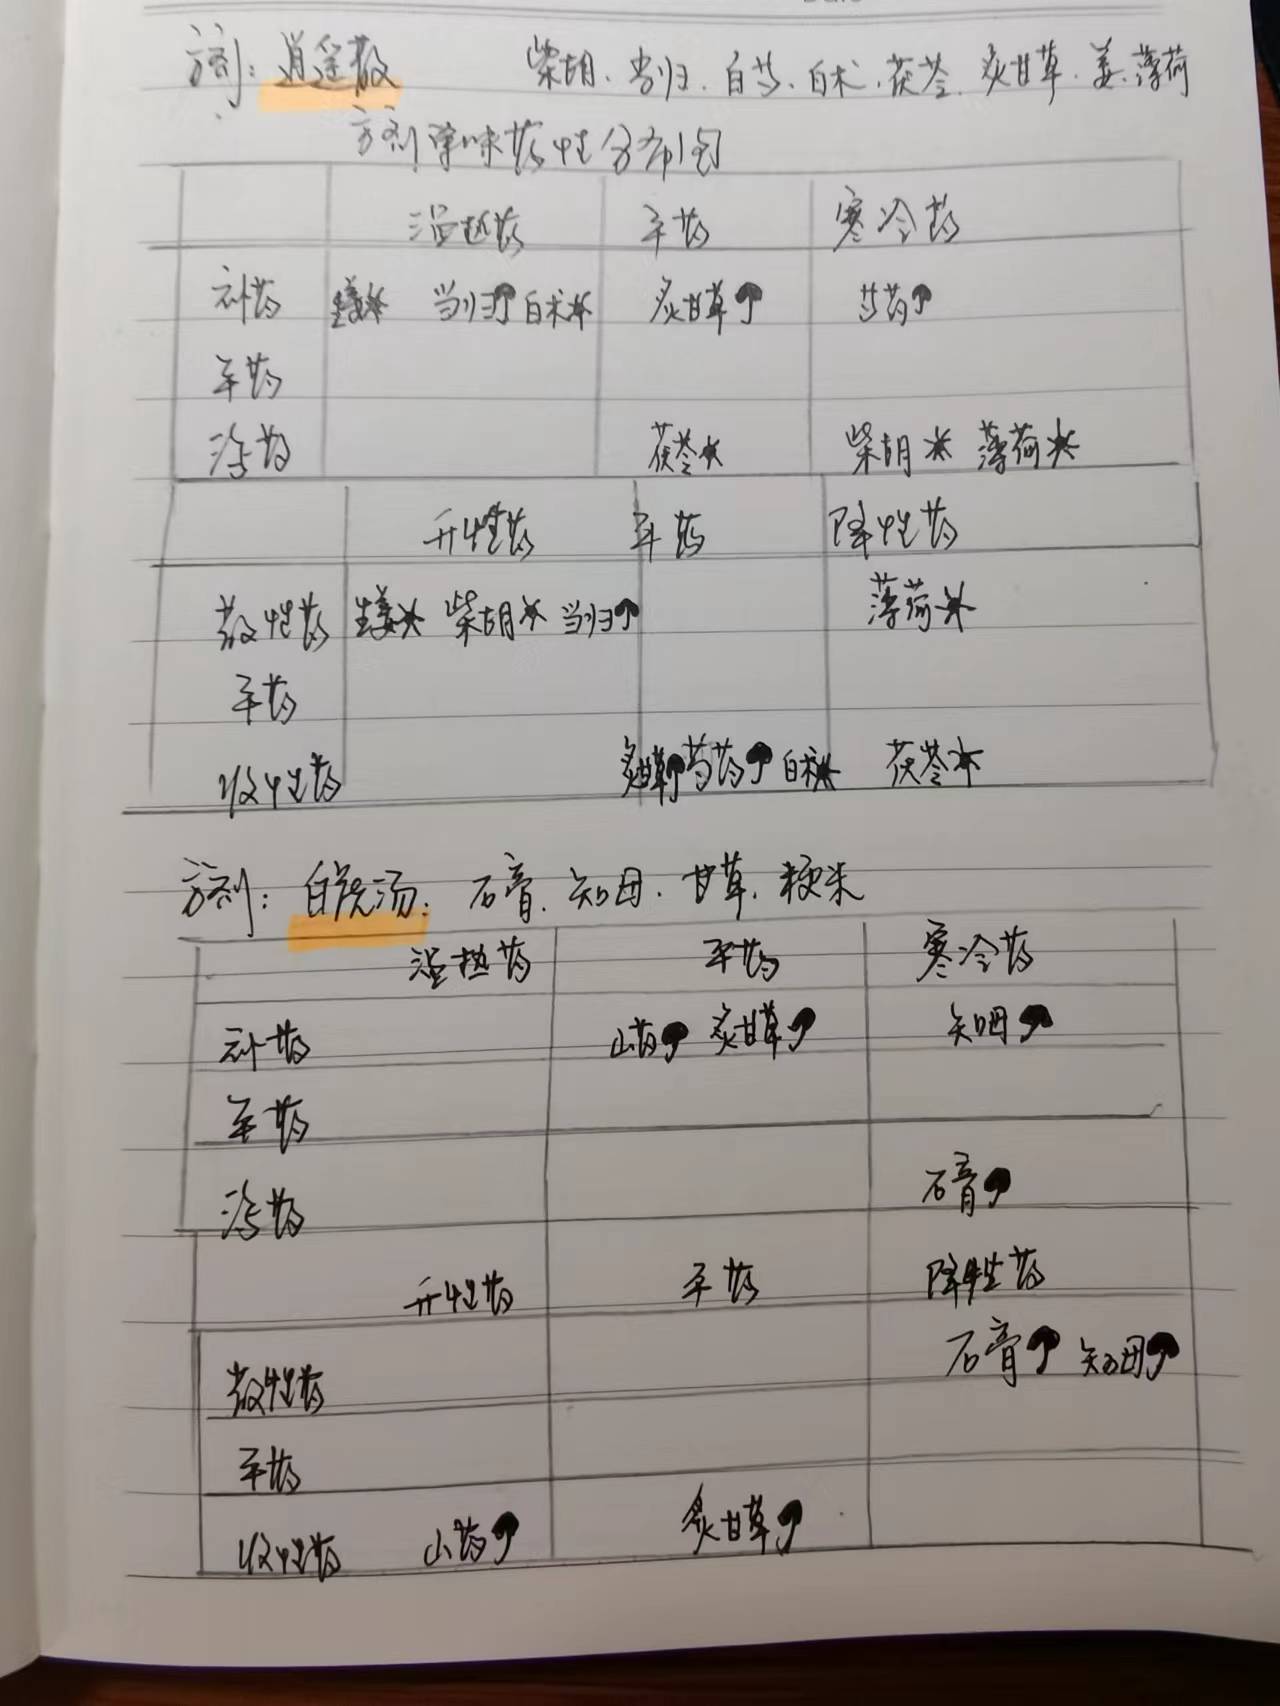 方剂：逍遥散 柴胡．当归．白芍．白术．茯苓．炙甘草．姜．薄荷
方剂单味药性分布图
温热药 平药 寒冷药
补药 生姜* 当归↑ 白术* 炙甘草↑ 芍药↑
平药
泻药 茯苓* 柴胡* 薄荷*
升性药 平药 降性药
散性药 生姜* 柴胡* 当归↑ 薄荷*
平药
收性药 炙甘草↑ 芍药↑ 白术* 茯苓*
方剂：白虎汤：石膏．知母．甘草．粳米
温热药 平药 寒冷药
补药 山药↑ 炙甘草↑ 知母↑
平药
泻药 石膏↑
升性药 平药 降性药
散性药 石膏↑ 知母↑
平药
收性药 山药↑ 炙甘草↑